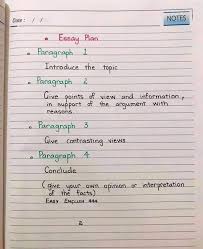 Date: / /
NOTES
Essay Plan
Paragraph 1
Introduce the topic
Paragraph 2
Give points of view and information,
in support of the argument with
reasons.
Paragraph 3
Give contrasting views
Paragraph 4
Conclude
(give your own opinion or interpretation
of the facts)
EASY ENGLISH 444
2